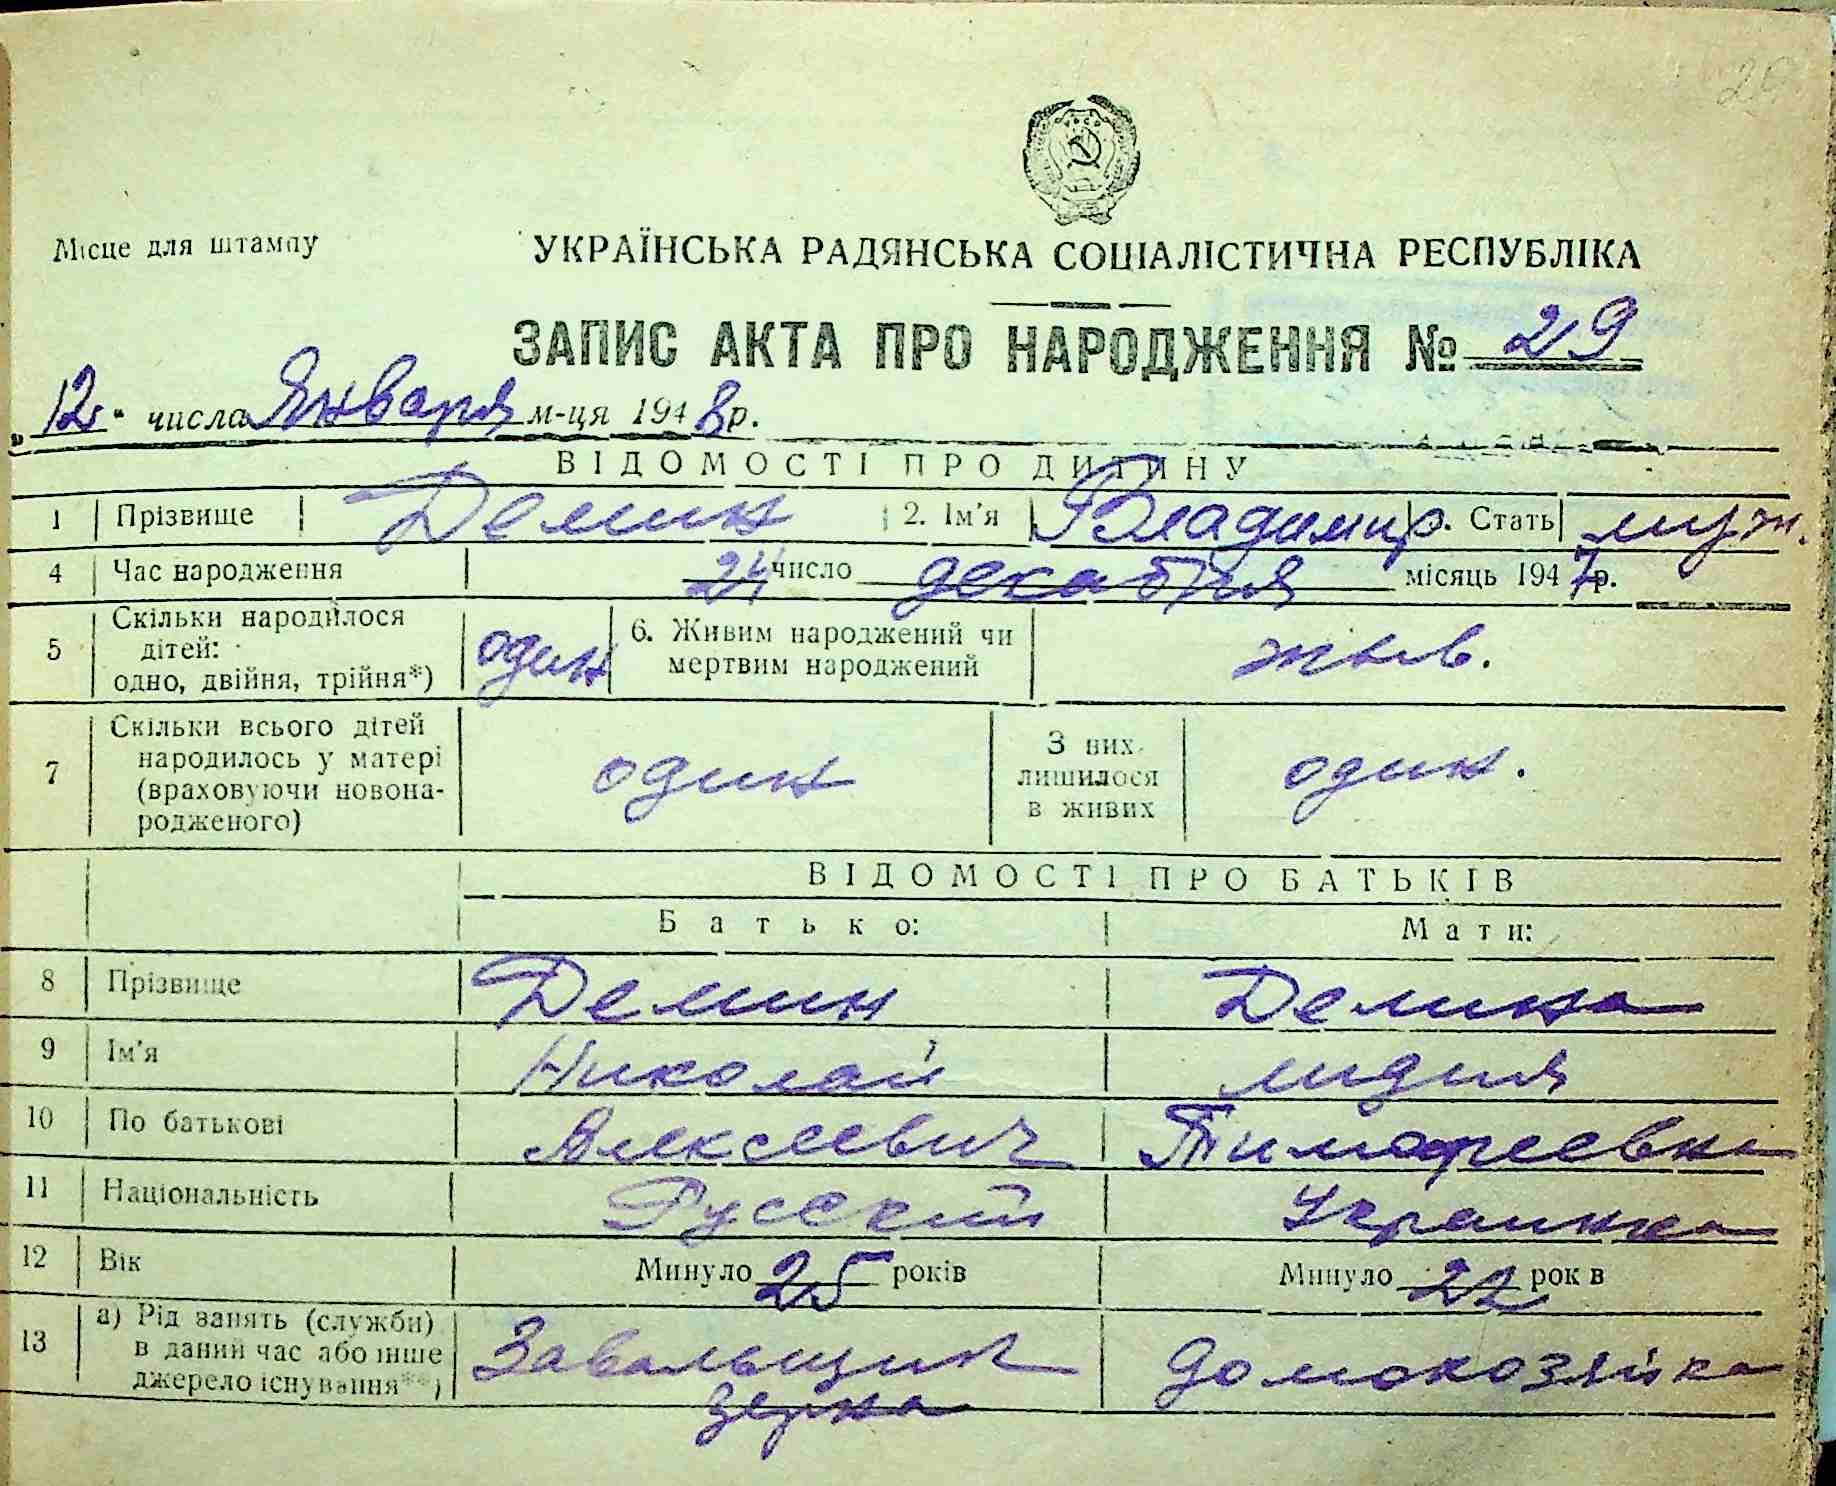 29
Місце для штампу
УКРАЇНСЬКА РАДЯНСЬКА СОЦІАЛІСТИЧНА РЕСПУБЛІКА
ЗАПИС АКТА ПРО НАРОДЖЕННЯ № 29
„12" числа Января м-ця 1948 р.
ВІДОМОСТІ ПРО ДИТИНУ
1 Прізвище Демин 2. Ім'я Владимир 3. Стать муж.
4 Час народження 24 число декабря місяць 1947 р.
5 Скільки народилося дітей: одно, двійня, трійня*) один 6. Живим народжений чи мертвим народжений жыв.
7 Скільки всього дітей народилось у матері (враховуючи новонародженого) один З них лишилося в живих один.
ВІДОМОСТІ ПРО БАТЬКІВ
Батько: Мати:
8 Прізвище Демин Демина
9 Ім'я Николай Лидия
10 По батькові Алексеевич Тимофеевна
11 Національність Русский Украинка
12 Вік Минуло 25 років Минуло 22 років
13 а) Рід занять (служби) в даний час або інше джерело існування**) Завальщик зерна домохозяйка